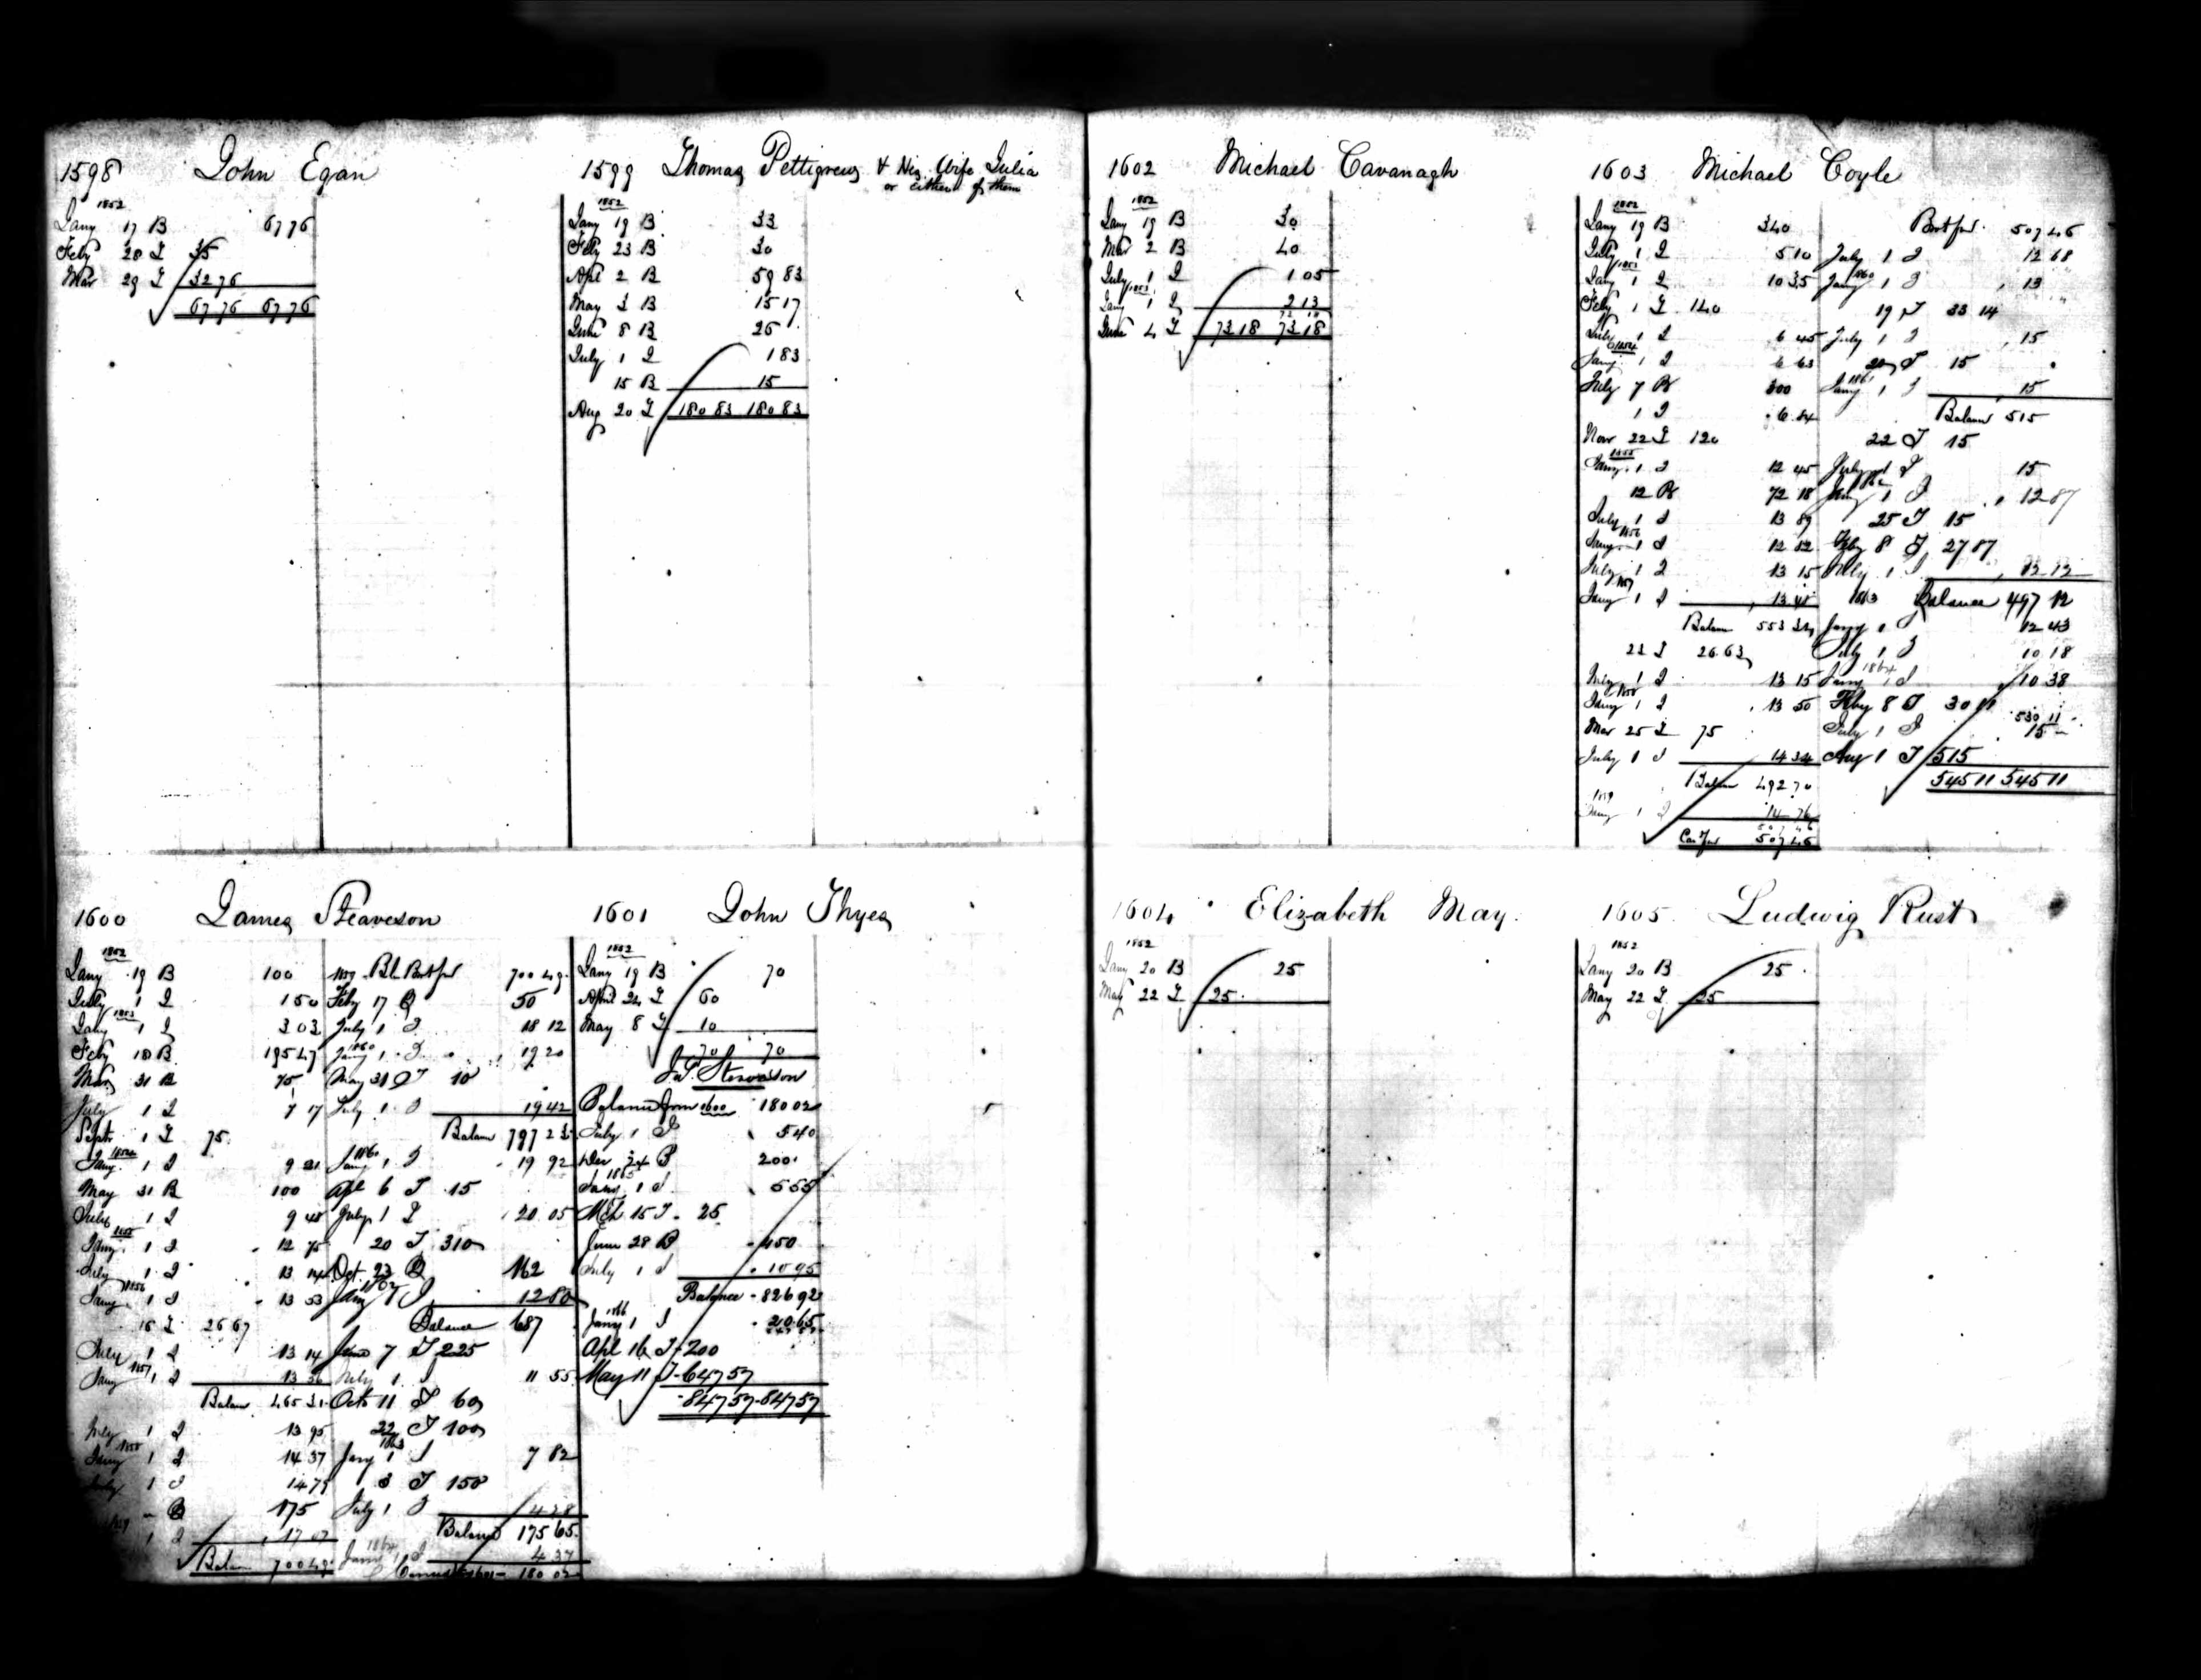 1598 John Egan
1852
Jany 17 B 67 76
Feby 28 I 35
Mar 29 I 32 76
67 76 67 76
1599 Thomas Pettigrew & His Wife Julia
or either of them
1852
Jany 19 B 33
Feby 23 B 30
Apl 2 B 59 83
May 3 B 15 17
June 8 B 26
July 1 I 1 83
15 B 15
Aug 20 I 180 83 180 83
1600 James Steaveson
1852
Jany 19 B 100
July 1 I 1 50
1853
Jany 1 I 3 03
Feby 18 B 195 47
Mar 31 B 75
July 1 I 7 17
Sept 1 I 75
1854
Jany 1 I 9 21
May 31 B 100
July 1 I 9 48
1855
Jany 1 I 12 75
July 1 I 13 14
1856
Jany 1 I 13 53
16 I 26 67
July 1 I 13 14
1857
Jany 1 I 13 56
Balan 465 31
July 1 I 13 95
1858
Jany 1 I 14 37
July 1 I 14 79
B 175
1859
1 I 17 07
Balan 700 49
1859 Bal Brot for 700 49
Feby 17 B 50
July 1 I 18 12
1860
Jany 1 I 19 20
May 31 I 10
July 1 I 19 42
Balan 797 23
Jany 1 I 19 92
Apl 6 I 15
July 1 I 20 05
20 I 310
Oct 23 B 162
Jany 1 I 12 80
Balance 687
June 7 I 225
July 1 I 11 55
Octr 11 I 60
22 I 100
1863
Jany 1 I 7 82
3 I 150
July 1 I 4 28
Balance 175 65
1864
Jany 1 I 4 37
180 02
1601 John Thyes
1852
Jany 19 B 70
April 24 I 60
May 8 I 10
70 70
Jas. Stevenson
Balance from 1600 180 02
July 1 I 5 40
Dec 24 B 200
1865
Jany 1 I 5 55
Mch 15 I 25
June 28 B 450
July 1 I 10 95
Balance 826 92
1866
Jany 1 I 20 65
Apl 16 I 200
May 11 I 647 57
847 57 847 57
1602 Michael Cavanagh
1852
Jany 19 B 30
Mar 2 B 40
July 1 I 1 05
1853
Jany 1 I 2 13
June 4 I 73 18 73 18
1603 Michael Coyle
1852
Jany 19 B 340
July 1 I 5 10
1853
Jany 1 I 10 35
Feby 1 I 140
July 1 I 6 45
1854
Jany 1 I 6 63
July 7 B 300
1 I 6 84
Nov 22 I 120
1855
Jany 1 I 12 45
12 B 72 18
July 1 I 13 89
1856
Jany 1 I 12 82
July 1 I 13 15
1857
Jany 1 I 13 48
Balan 553 34
23 I 26 63
July 1 I 13 15
1858
Jany 1 I 13 50
Mar 25 I 75
July 1 I 14 34
Balan 492 70
1859
Jany 1 I 14 76
Car for 507 46
Brot for 507 46
July 1 I 12 68
1860
Jany 1 I 13
19 I 33 14
July 1 I 15
20 I 15
1861
Jany 1 I 15
Balan 515
22 I 15
July 1 I 15
1862
Jany 1 I 12 87
25 I 15
Feby 8 I 27 87
July 1 I 12 12
1863 Balance 497 12
Jany 1 I 12 43
July 1 I 10 18
1864
Jany 1 I 10 38
Feby 8 I 30 11
530 11
July 1 I 15
Aug 1 I 515
545 11 545 11
1604 Elizabeth May.
1852
Jany 20 B 25
May 22 I 25
1605 Ludwig Rust
1852
Jany 20 B 25
May 22 I 25